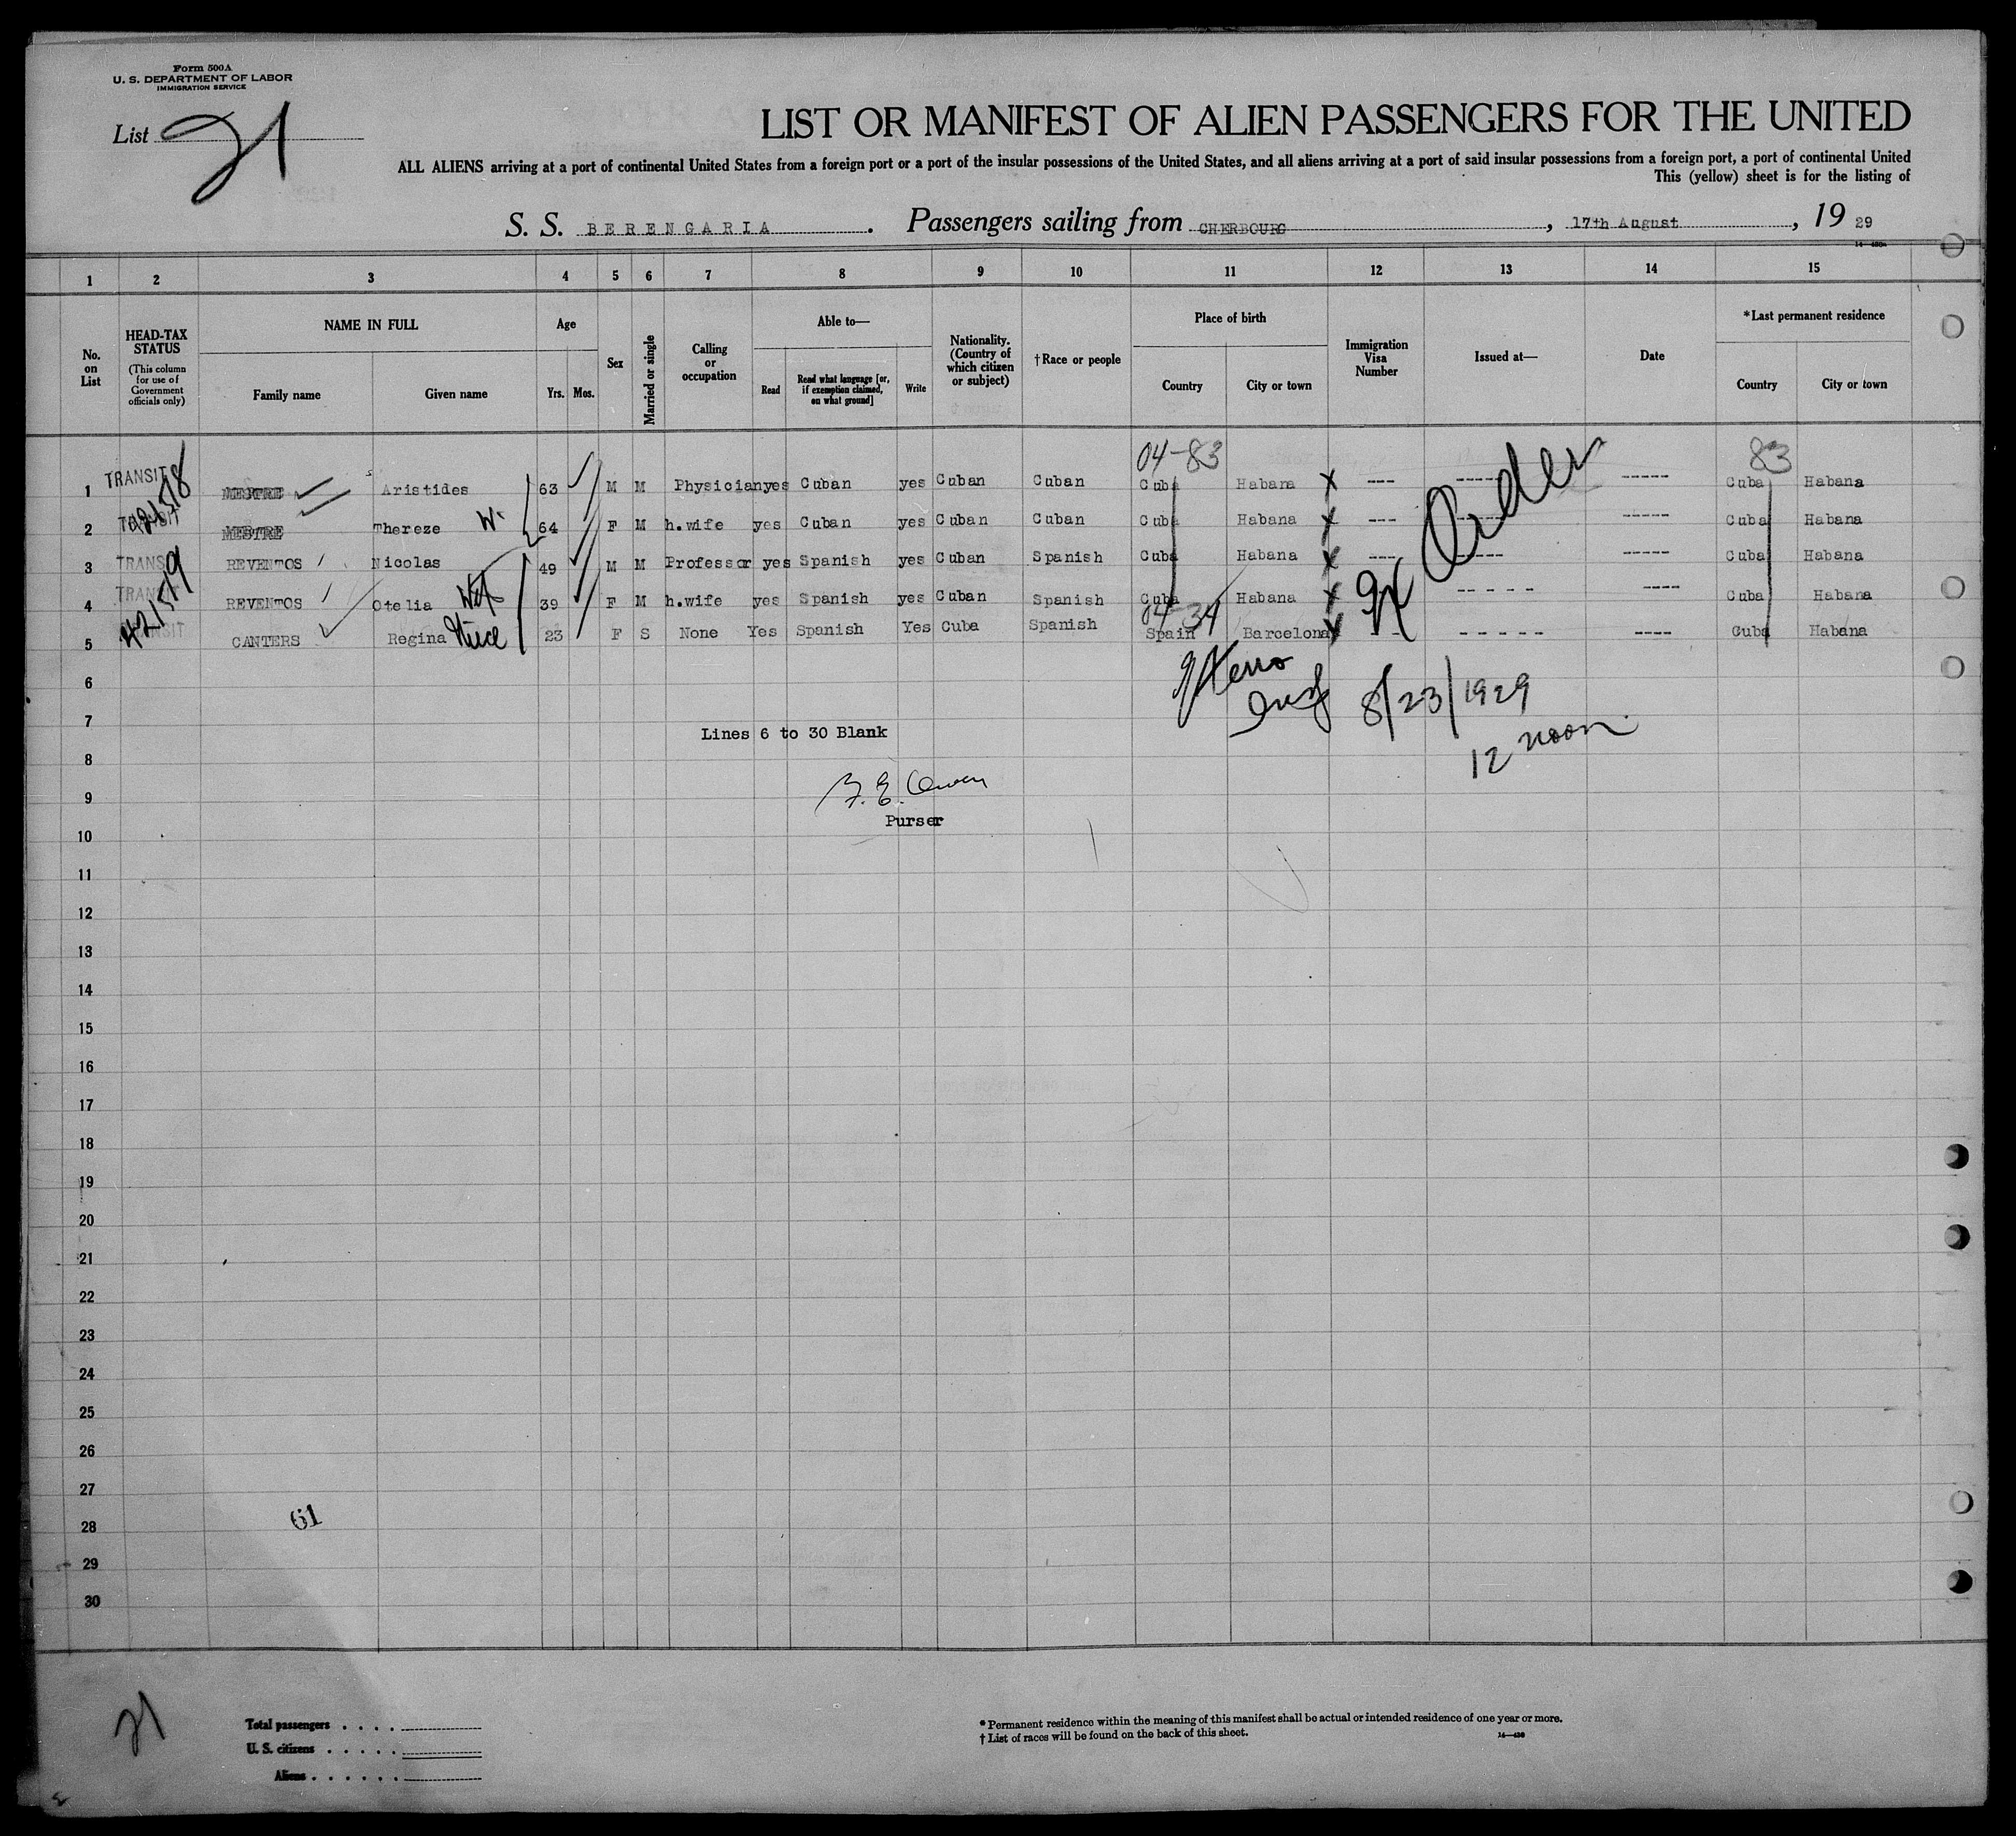 Form 500A
U. S. DEPARTMENT OF LABOR
IMMIGRATION SERVICE
List 21
LIST OR MANIFEST OF ALIEN PASSENGERS FOR THE UNITED
ALL ALIENS arriving at a port of continental United States from a foreign port or a port of the insular possessions of the United States, and all aliens arriving at a port of said insular possessions from a foreign port, a port of continental United
This (yellow) sheet is for the listing of
S. S. BERENGARIA. Passengers sailing from CHERBOURG, 17th August, 19 29
1 2 3 4 5 6 7 8 9 10 11 12 13 14 15
No. on List
HEAD-TAX STATUS (This column for use of Government officials only)
NAME IN FULL Family name Given name
Age Yrs. Mos.
Sex
Married or single
Calling or occupation
Able to— Read Read what language [or, if exemption claimed, on what ground] Write
Nationality. (Country of which citizen or subject)
†Race or people
Place of birth Country City or town
Immigration Visa Number
Issued at—
Date
*Last permanent residence Country City or town
04-83 83
1 TRANSIT MESTRE Aristides 63 M M Physician yes Cuban yes Cuban Cuban Cuba Habana X --- ----- ----- Cuba Habana
2 TRANSIT MESTRE Thereze W. 64 F M h.wife yes Cuban yes Cuban Cuban Cuba Habana X --- ----- Cuba Habana
3 TRANSIT REVENTOS Nicolas 49 M M Professor yes Spanish yes Cuban Spanish Cuba Habana X --- ----- ----- Cuba Habana
4 TRANSIT REVENTOS Otelia 39 F M h.wife yes Spanish yes Cuban Spanish Cuba Habana X ----- ---- Cuba Habana
04-34
5 TRANSIT 421519 CANTERS Regina Niece 23 F S None Yes Spanish Yes Cuba Spanish Spain Barcelona X -- ----- ---- Cuba Habana
6
8/23/1929
7
Lines 6 to 30 Blank
12 noon
8
9
Purser
10
11
12
13
14
15
16
17
18
19
20
21
22
23
24
25
26
27
61
28
29
30
21
Total passengers
U. S. citizens
Aliens
* Permanent residence within the meaning of this manifest shall be actual or intended residence of one year or more.
† List of races will be found on the back of this sheet.